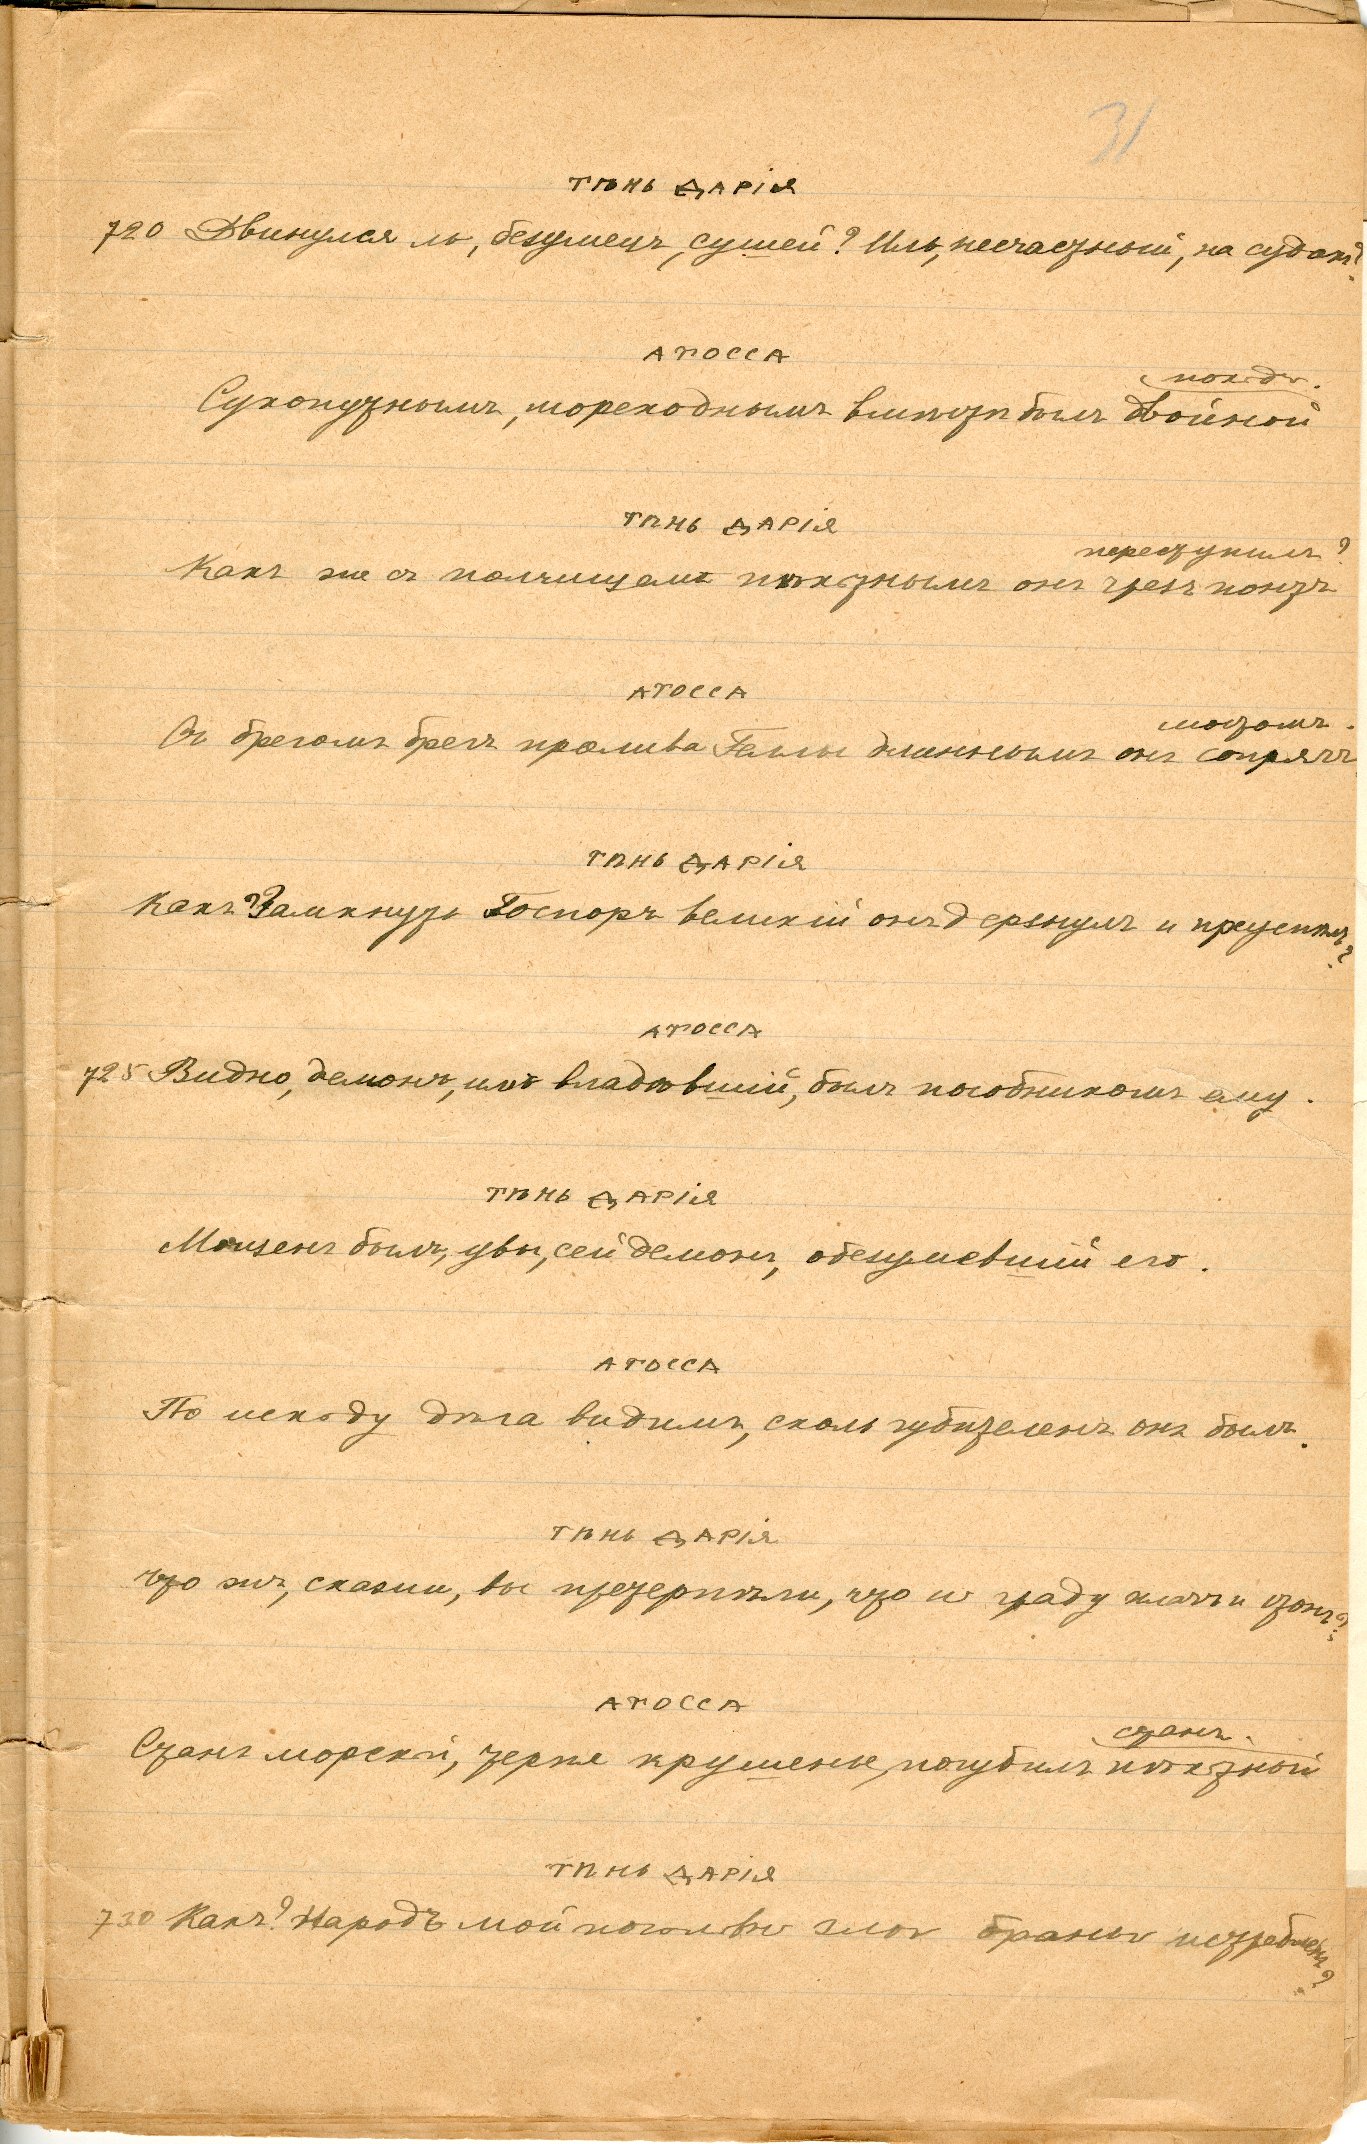 31
ТѢНЬ ДАРІЯ
720 Двинулся ль, безумецъ, сушей? Иль, несчастный, на судахъ?
АТОССА
Сухопутнымъ, мореходнымъ вмѣстѣ былъ двойной
походъ.
ТѢНЬ ДАРІЯ
Какъ же съ полчищемъ пѣхотнымъ онъ чрезъ понтъ
переступилъ?
АТОССА
Съ брегомъ брегъ пролива Геллы длиннымъ онъ сопрягъ
мостомъ.
ТѢНЬ ДАРІЯ
Какъ? Замкнуть Боспоръ великій онъ дерзнулъ и преуспѣлъ?
АТОССА
725 Видно, демонъ, имъ владѣвшій, былъ пособникомъ ему.
ТѢНЬ ДАРІЯ
Мощенъ былъ, увы, сей демонъ, обезумевшій его.
АТОССА
По исходу дѣла видимъ, сколь губителенъ онъ былъ.
ТѢНЬ ДАРІЯ
Что жъ, скажи, вы претерпѣли, что по граду плачъ и стонъ?
АТОССА
Станъ морской, терпя крушенье, погубилъ пѣхотный
станъ.
ТѢНЬ ДАРІЯ
730 Какъ? Народъ мой поголовно злою бранью истребленъ?